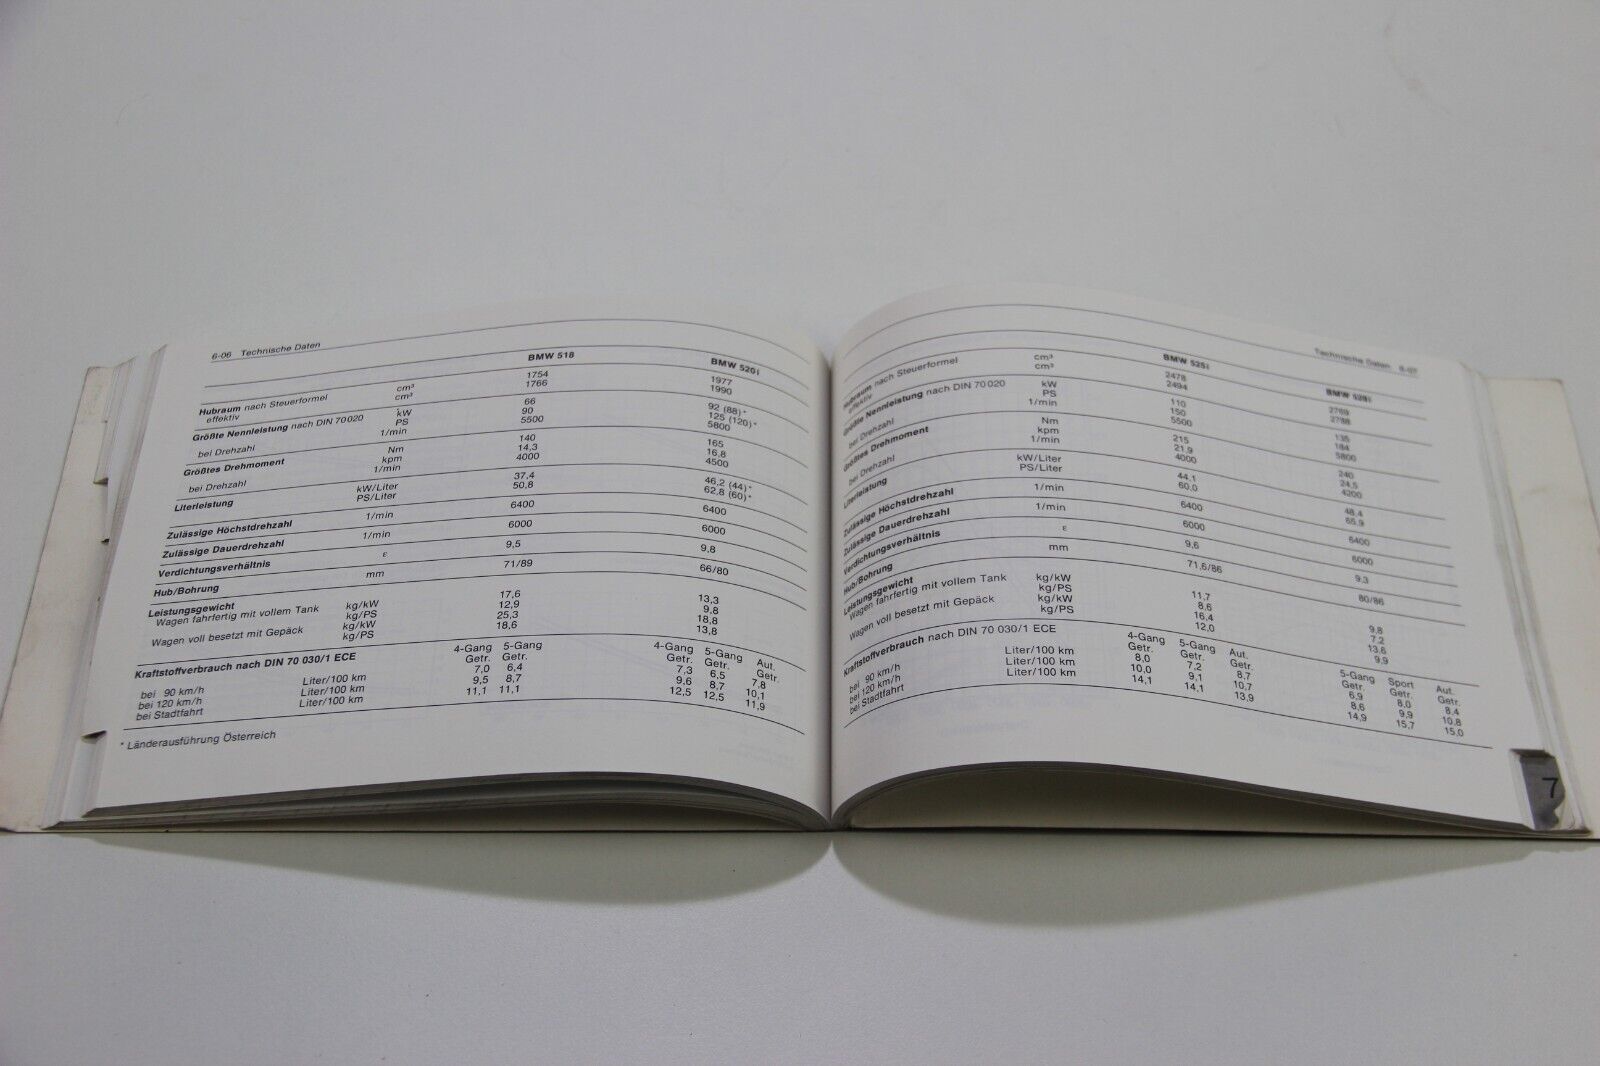 6-06 Technische Daten
BMW 518 BMW 520i
Hubraum nach Steuerformel cm³ 1754 1977
effektiv cm³ 1766 1990
Größte Nennleistung nach DIN 70020 kW 66 92 (88)*
PS 90 125 (120)*
bei Drehzahl 1/min 5500 5800
Größtes Drehmoment Nm 140 165
kpm 14,3 16,8
bei Drehzahl 1/min 4000 4500
Literleistung kW/Liter 37,4 46,2 (44)*
PS/Liter 50,8 62,8 (60)*
Zulässige Höchstdrehzahl 1/min 6400 6400
Zulässige Dauerdrehzahl 1/min 6000 6000
Verdichtungsverhältnis ε 9,5 9,8
Hub/Bohrung mm 71/89 66/80
Leistungsgewicht
Wagen fahrfertig mit vollem Tank kg/kW 17,6 13,3
kg/PS 12,9 9,8
Wagen voll besetzt mit Gepäck kg/kW 25,3 18,8
kg/PS 18,6 13,8
Kraftstoffverbrauch nach DIN 70 030/1 ECE 4-Gang 5-Gang 4-Gang 5-Gang Aut.
Getr. Getr. Getr. Getr. Getr.
bei 90 km/h Liter/100 km 7,0 6,4 7,3 6,5 7,8
bei 120 km/h Liter/100 km 9,5 8,7 9,6 8,7 10,1
bei Stadtfahrt Liter/100 km 11,1 11,1 12,5 12,5 11,9
* Länderausführung Österreich
Technische Daten 6-07
BMW 525i BMW 528i
Hubraum nach Steuerformel cm³ 2478 2769
effektiv cm³ 2494 2788
Größte Nennleistung nach DIN 70020 kW 110 135
PS 150 184
bei Drehzahl 1/min 5500 5800
Größtes Drehmoment Nm 215 240
kpm 21,9 24,5
bei Drehzahl 1/min 4000 4200
Literleistung kW/Liter 44,1 48,4
PS/Liter 60,0 65,9
Zulässige Höchstdrehzahl 1/min 6400 6400
Zulässige Dauerdrehzahl 1/min 6000 6000
Verdichtungsverhältnis 9,6 9,3
Hub/Bohrung mm 71,6/86 80/86
Leistungsgewicht
Wagen fahrfertig mit vollem Tank kg/kW 11,7 9,8
kg/PS 8,6 7,2
Wagen voll besetzt mit Gepäck kg/kW 16,4 13,6
kg/PS 12,0 9,9
Kraftstoffverbrauch nach DIN 70 030/1 ECE 4-Gang 5-Gang Aut. 5-Gang Sport Aut.
Getr. Getr. Getr. Getr. Getr. Getr.
bei 90 km/h Liter/100 km 8,0 7,2 8,7 6,9 8,0 8,4
bei 120 km/h Liter/100 km 10,0 9,1 10,7 8,6 9,9 10,8
bei Stadtfahrt Liter/100 km 14,1 14,1 13,9 14,9 15,7 15,0
7